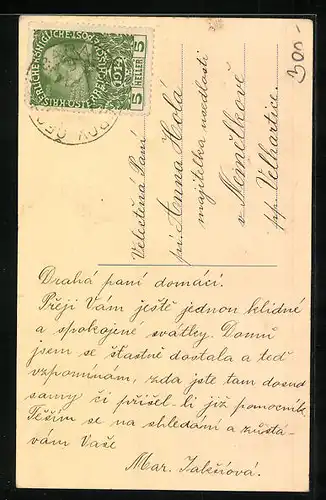 300-
KAISERLICHE KÖNIGLICHE ÖSTERREICHISCHE POST
1908
1913
5 HELLER 5
Velectěná Paní
pí. Anna Holá
majitelka usedlosti
v Němčikově
pp. Velhartice.
Drahá paní domácí.
Přeji Vám ještě jednou klidné
a spokojené svátky. Domů
jsem se šťastně dostala a teď
vzpomínám, zda jste tam dosud
samy či přišel-li již pomocník.
Těším se na shledání a zůstá-
vám Vaše
Mar.